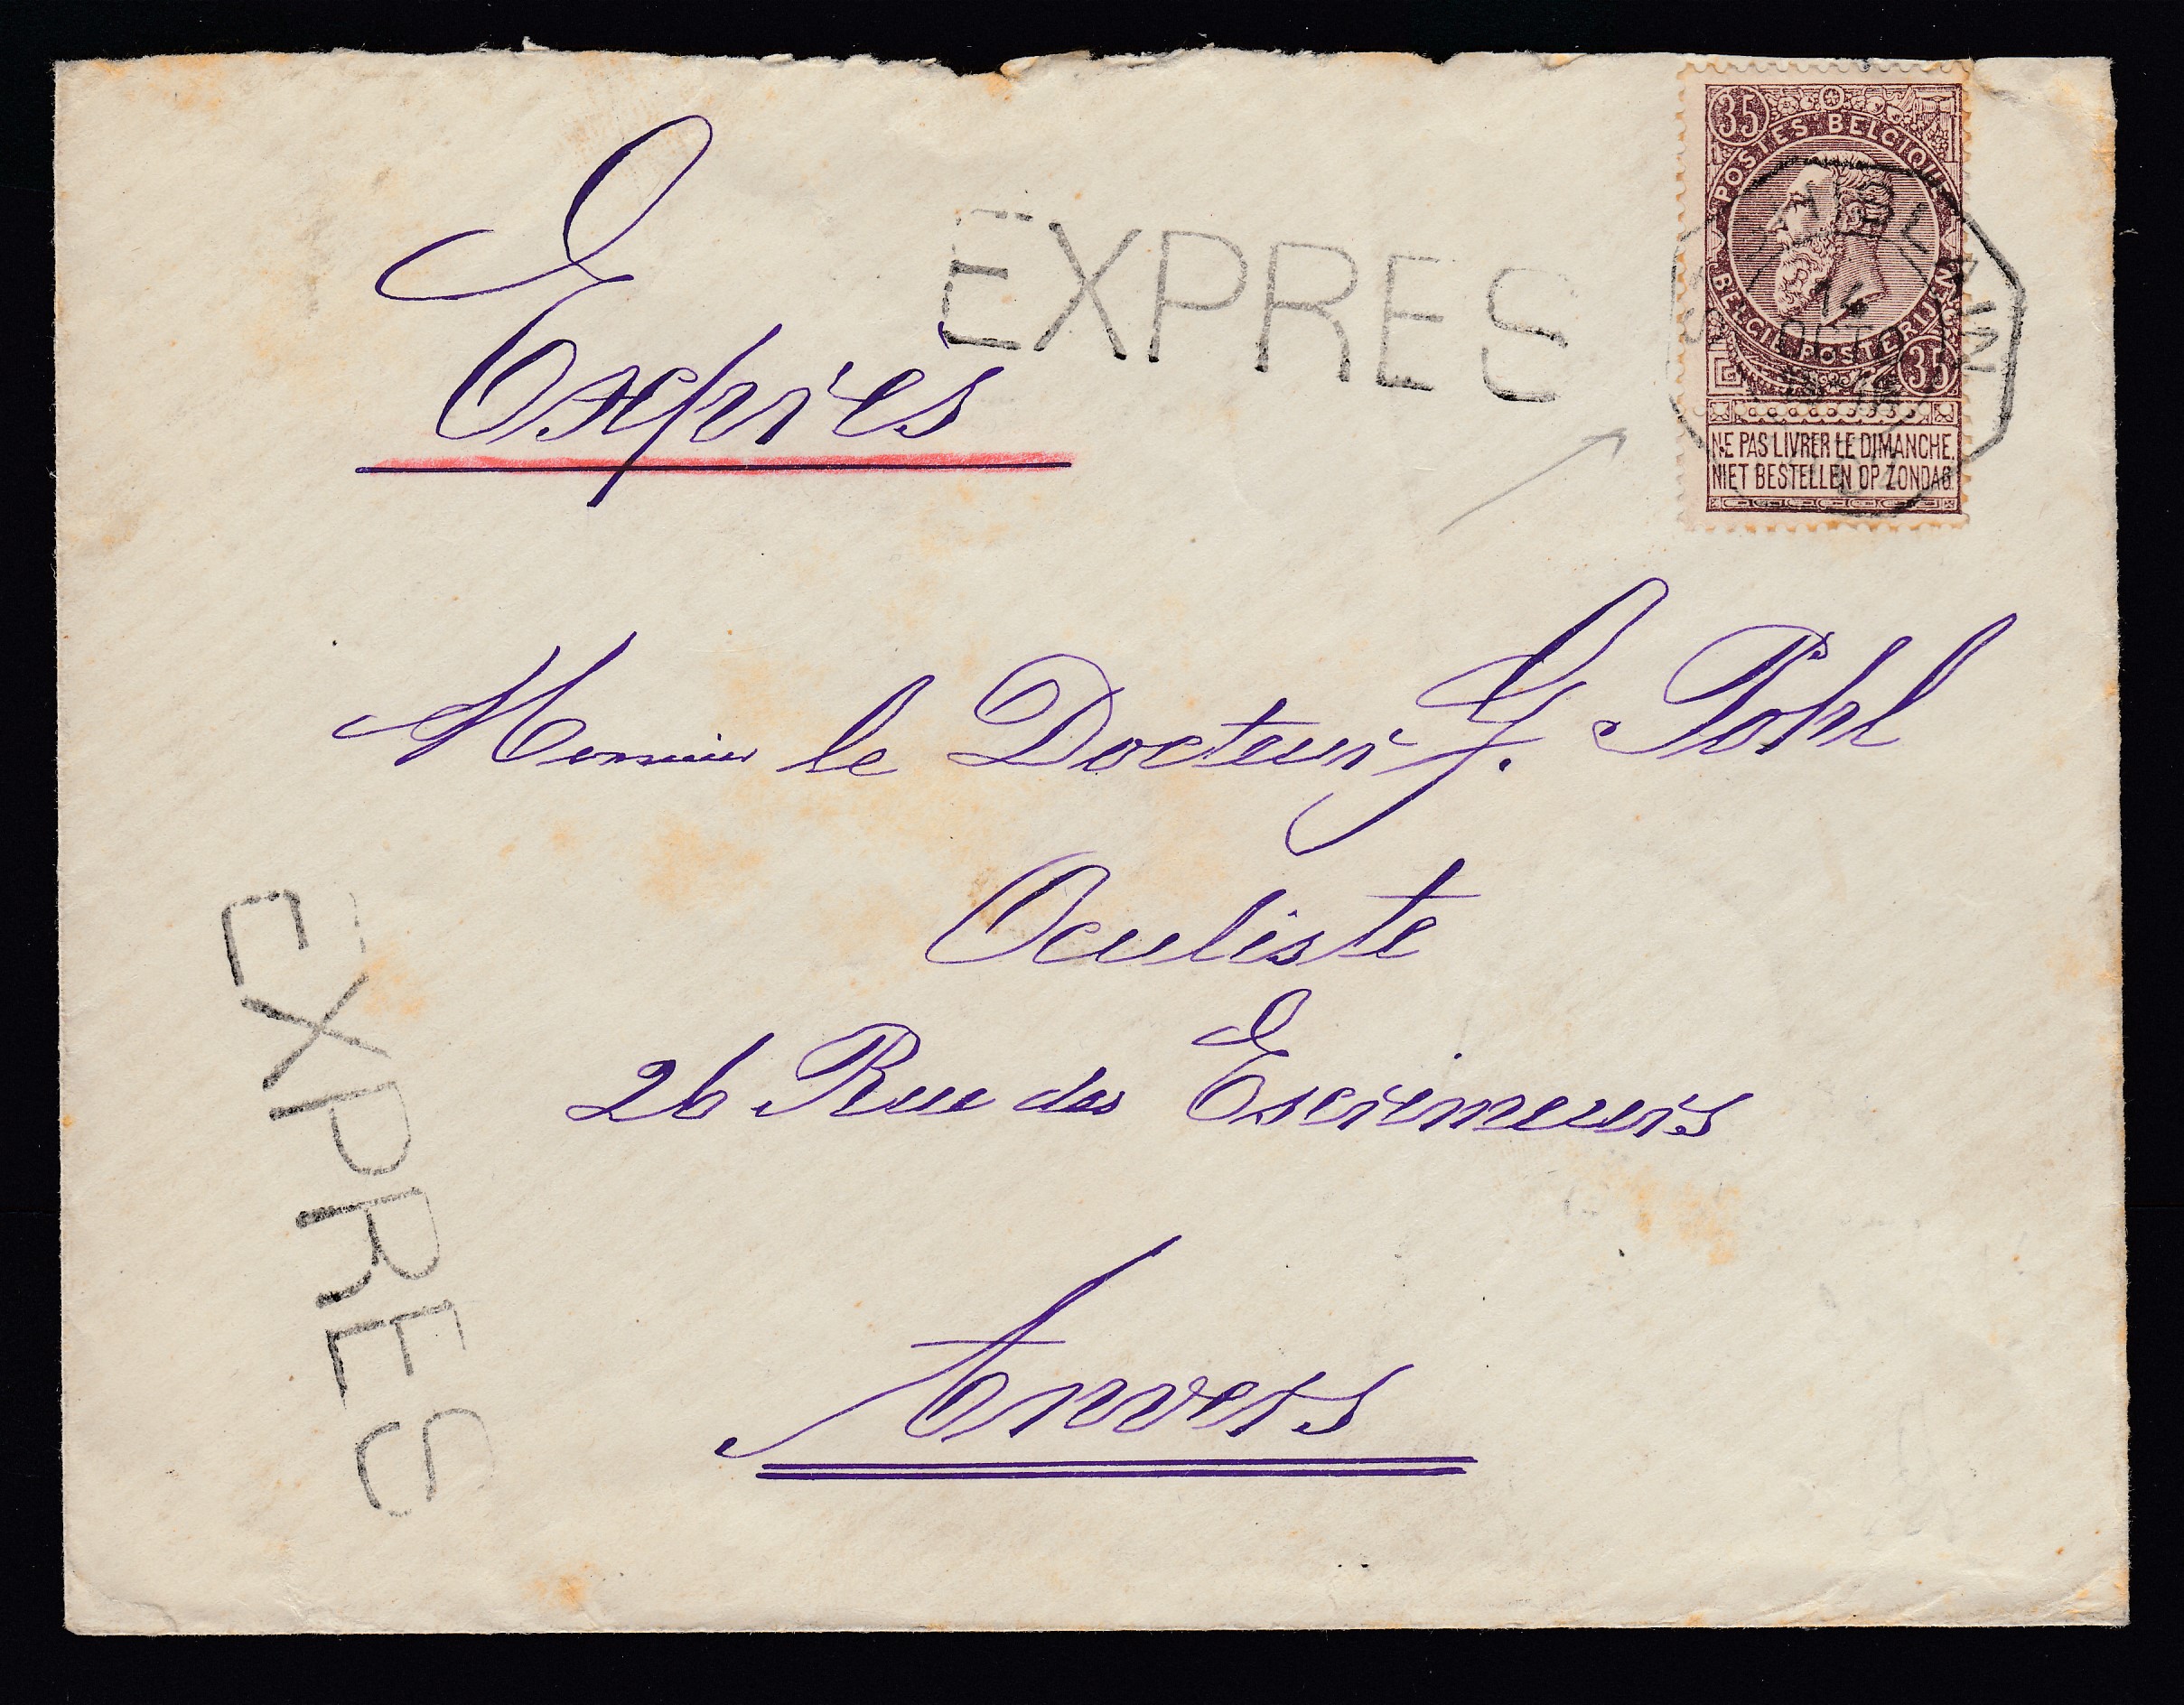 Exprès
EXPRES
35
POSTES BELGIQUE
14
OCT
BELGIE POSTERIJEN
35
NE PAS LIVRER LE DIMANCHE.
NIET BESTELLEN OP ZONDAG
Monsieur le Docteur J. Pohl
Oculiste
26 Rue des Escrimeurs
Anvers
EXPRES